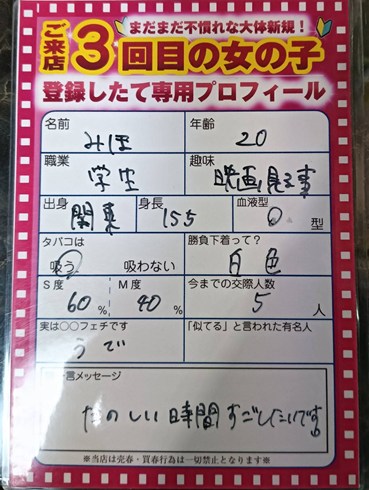 まだまだ不慣れな大体新規！
ご来店3回目の女の子
登録したて専用プロフィール
名前 みほ 年齢 20
職業 学生 趣味 映画見る事
出身 関東 身長 155 血液型 O 型
タバコは 吸う 吸わない 勝負下着って？ 白色
S度 60 % M度 40 % 今までの交際人数 5 人
実は○○フェチです うで 「似てる」と言われた有名人
一言メッセージ
たのしい時間すごしたいです
※当店は売春・買春行為は一切禁止となります※